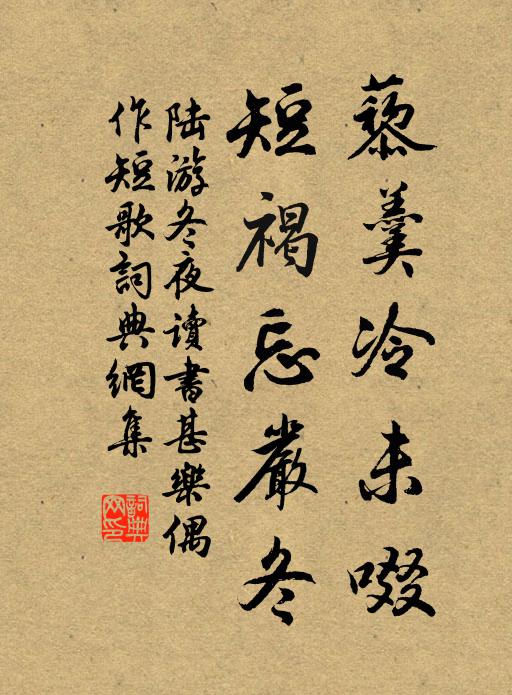 藜羹冷未啜
短褐忘嚴冬
陆游冬夜读書甚樂偶
作短歌詞典網集
詞典
网印